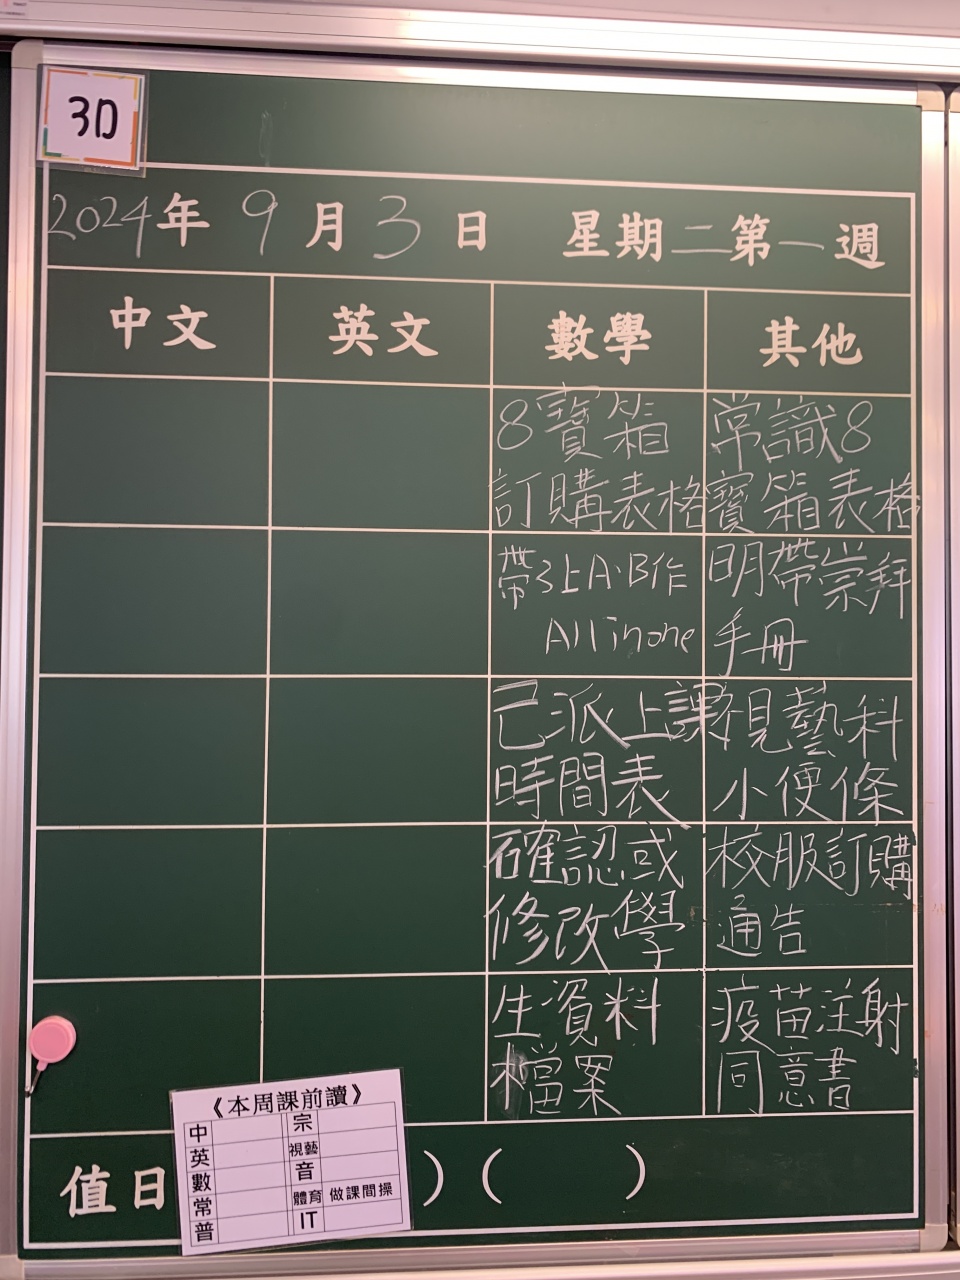 3D
2024年9月3日 星期二第一週
中文 英文 數學 其他
8寶箱
訂購表格
帶3上A·B作
All in one
已派上課
時間表
確認或
修改學
生資料
檔案
常識8
寶箱表格
明帶崇拜
手冊
視藝科
小便條
校服訂購
通告
疫苗注射
同意書
值日 ) ( )
《本周課前讀》
中 宗
英 視藝
數 音
常 體育 做課間操
普 IT